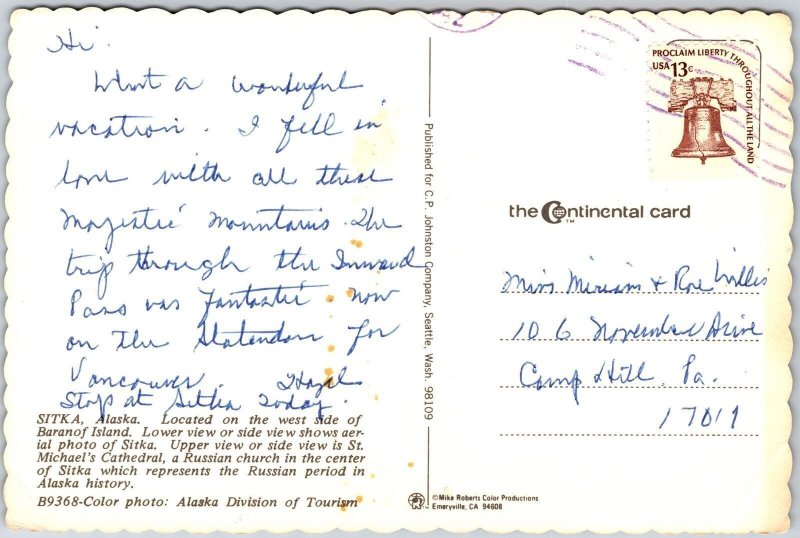 Hi.
What a wonderful
vacation. I fell in
love with all these
majestic mountains. The
trip through the Inward
Pass was fantastic. Now
on the Statendam for
Vancouver. Hazel
Stop at Sitka today.
SITKA, Alaska. Located on the west side of
Baranof Island. Lower view or side view shows aer-
ial photo of Sitka. Upper view or side view is St.
Michael's Cathedral, a Russian church in the center
of Sitka which represents the Russian period in
Alaska history.
B9368-Color photo: Alaska Division of Tourism
Published for C. P. Johnston Company, Seattle, Wash. 98109
PROCLAIM LIBERTY THROUGHOUT ALL THE LAND
USA 13c
the Continental card
TM
Miss Miriam & Roe Willis
106 November Drive
Camp Hill, Pa.
17011
©Mike Roberts Color Productions
Emeryville, CA 94608